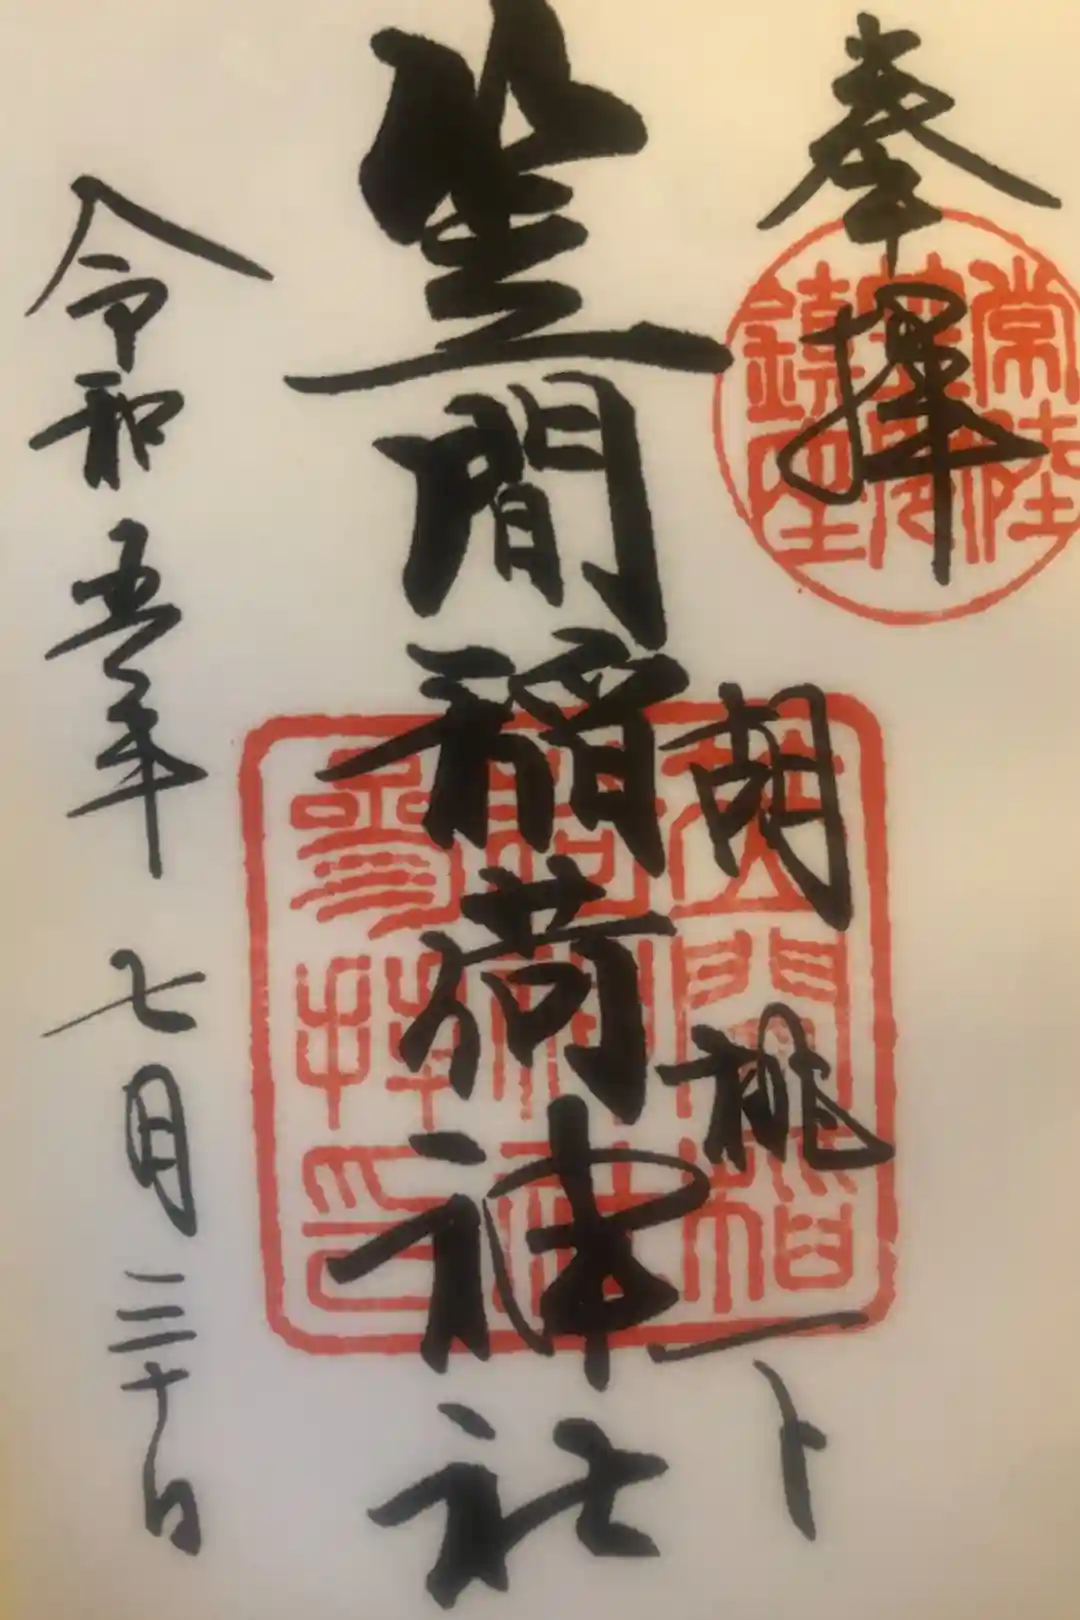 奉拝
常陸
笠間
鎮座
胡桃下
笠間稲荷神社
笠間稲
荷神社
参拝印
令和五年七月三十日